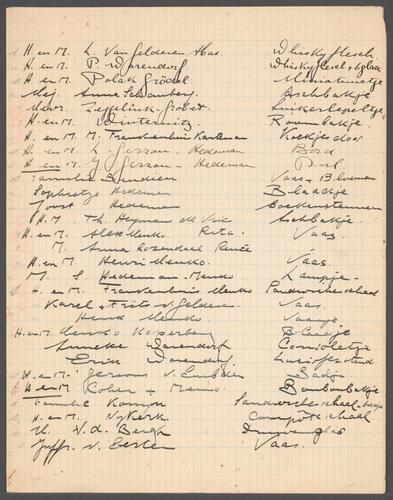 H. en M. L. Van Gelderen Has Whiskyflesch
H. en M. P. Wijnendorf Whiskyflesch + glaa
H. en M. Polak Grödel Miniatuurtje
Mej. Anna Schomberg Aschbakje
Mevr. Grobet Suikerlepeltje
H. en M. Winternitz Roombakje
H. en M. M. Frankenhuis Kankman Koekjesdoos
H. en M. L. Gerzon - Hedeman Bord
H. en M. J. Gerzon - Hedeman Pul
Familie Bendien Vaas + Bloemen
Sophietje Hedeman Blaadje
Joost Hedeman Boekensteunen
H. M. Th. Heymans de Vries Aschbakje
H. en M. Alex Menko Rita Vaas
M. Anna Rozendaal Renée
H. en M. Henri Menko Vaas.
M. S. Hedeman - Menko Lampje
H. en M. Frankenhuis Menko Sandwicheschaal
Karel + Frits v. Gelderen Vaas.
Henk Menko Vaasje
H. en M. Menko Koperberg Blaadje
Anneke Dorendorf Couvertje
Erik Dorendorf
H. en M. Gersons v. Bakje
H en M. Kober + Menno Bonbonbakje
Familie Kompn Sandwicheschaal
H. en M. Nykerk Compôteschaal
H. V. d. Bergh
Juffr. v. Vaas.